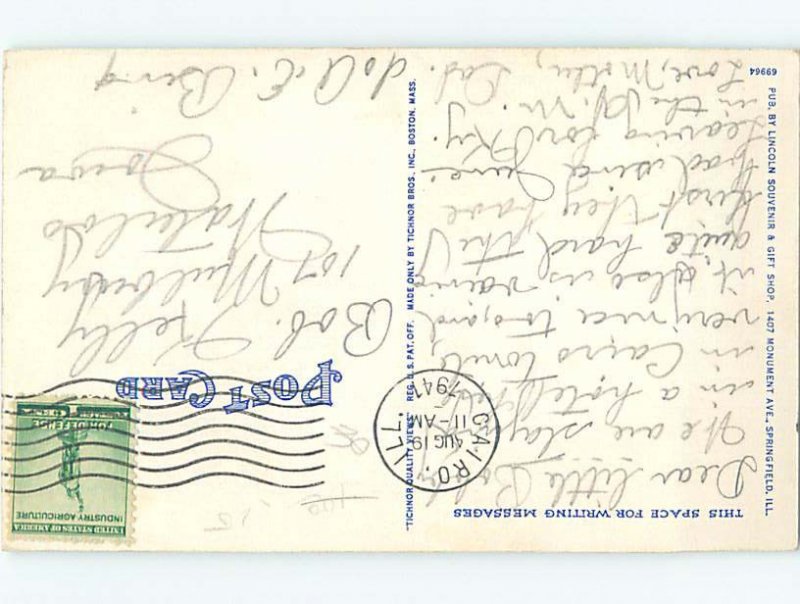 THIS SPACE FOR WRITING MESSAGES
Dear little Bob,
We are stay
in a hotel
in Cairo tonite,
very nice too, and
it, also is raining
quite hard, the
first they have
had since June.
Leaving for Ky.
in the A.M.
Love, Mother, Dad.
POST CARD
UNITED STATES OF AMERICA
INDUSTRY AGRICULTURE
FOR DEFENSE
CAIRO, ILL.
AUG 19
11-AM
1941
Bob. Kelly
107 Mulberry
Waterloo
Iowa
% A. E. Bing
"TICHNOR QUALITY VIEWS" REG. U.S. PAT. OFF. MADE ONLY BY TICHNOR BROS., INC., BOSTON, MASS.
PUB. BY LINCOLN SOUVENIR & GIFT SHOP, 1407 MONUMENT AVE., SPRINGFIELD, ILL.
69964